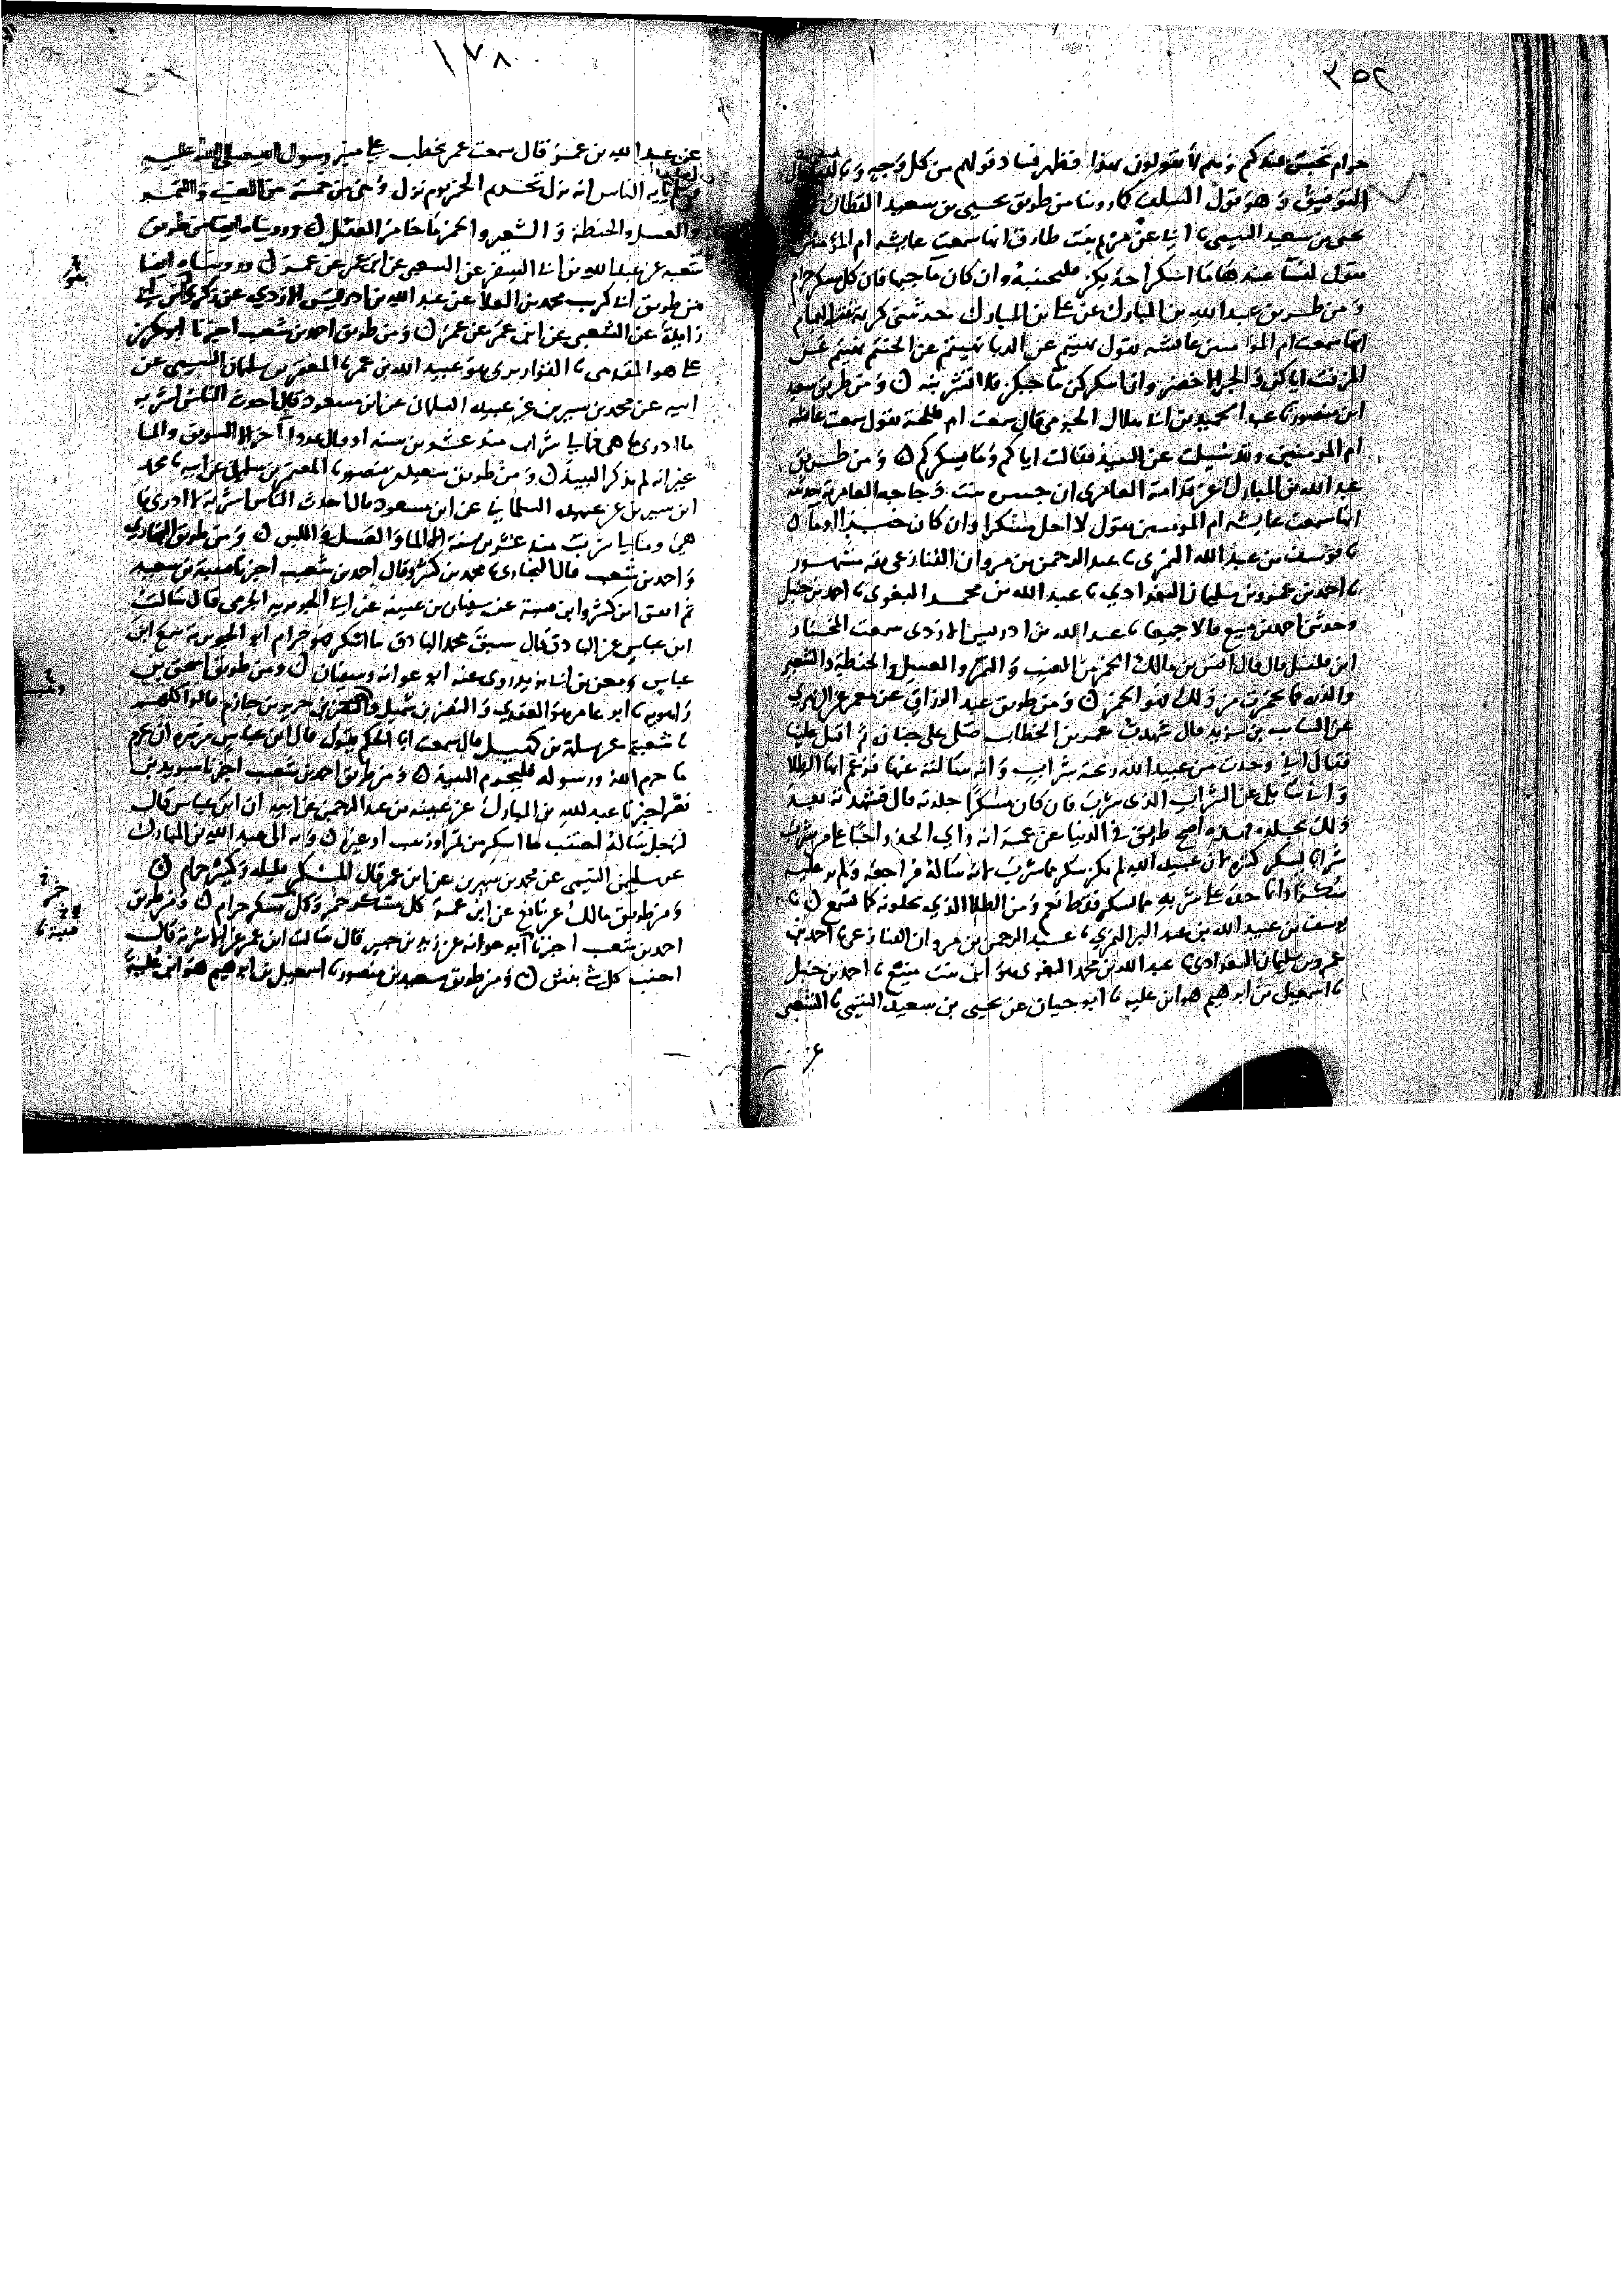 ٢٥٢
حرام نجس عندكم وهم لا يقولون بهذا فظهر فساد قولهم من كل وجه وبالله تعالى
التوفيق وهو قول السلف كما روينا من طريق يحيى بن سعيد القطان
يحيى بن سعيد التيمي نا ابي عن مريم بنت طارق انها سمعت عايشة ام المؤمنين
تقول لنسا عندها ما اسكر احدكن فلتجتنبه وان كان ما حبها فان كل مسكر حرام
ومن طريق عبد الله بن المبارك عن علي بن المبارك حدثتني كريمة بنت همام
انها سمعت ام المؤمنين عايشة تقول نهيتم عن الدبا نهيتم عن الحنتم نهيتم عن
المزفت اياكن والجر الاخضر وان اسكركن ما حبكن فلا تشربنه ومن طريق سعيد
ابن منصور نا عبد الحميد بن
ام المؤمنين وقد سئلت عن النبيذ فقالت اياكم وما يسكركم ومن طريق
عبد الله بن المبارك عن قدامة العامري ان جسرة بنت دجاجة العامرية حدثته
انها سمعت عايشة ام المؤمنين تقول لا احل مسكرا وان كان خبزا او ما
نا يوسف بن عبد الله النمري نا عبد الرحمن بن مروان القنازعي ثقة مشهور
نا احمد بن عمرو بن سليمان البغدادي نا عبد الله بن محمد البغوي نا احمد بن حنبل
وحدثني احمد بن منيع قالا جميعا نا عبد الله بن ادريس الاودي سمعت المختار
ابن فلفل قال قال انس بن مالك الخمر من العنب والتمر والعسل والحنطة والشعير
والذرة فما خمرت من ذلك فهو الخمر ومن طريق عبد الرزاق عن معمر عن الزهري
عن السايب بن يزيد قال شهدت عمر بن الخطاب صلى على جنازة ثم اقبل علينا
فقال اني وجدت من عبيد الله ريحة شراب واني سالته عنها فزعم انها الطلا
واني سايل عن الشراب الذي شرب فان كان مسكرا جلدته قال فشهدته بعد
ذلك يجلده فهذه اصح طريق في الدنيا عن عمر انه راي الحد واجبا على من شرب
شرابا يسكر كثيره لان عبيد الله لم يكن سكر مما شرب لانه ساله فراجعه ولم ير عليه
سكرا وانما حده على شربه مما يسكر فقط نعم ومن الطلا الذي يحلونه كما تسمع نا
يوسف بن عبد الله بن عبد البر النمري نا عبد الرحمن بن مروان القنازعي نا احمد بن
عمرو بن سليمان البغدادي نا عبد الله بن محمد البغوي هو ابن بنت منيع نا احمد بن حنبل
نا اسمعيل بن ابرهيم هو ابن علية نا ابو حيان عن يحيى بن سعيد التيمي نا الشعبي
١٧٨
عن عبد الله بن عمر قال سمعت عمر يخطب على منبر رسول الله صلى الله عليه
وسلم يا ايها الناس انه نزل تحريم الخمر يوم نزل وهي من خمسة من العنب والتمر
والعسل والحنطة والشعير والخمر ما خامر العقل وروينا ايضا من طريق
شعبة عن عبد الله بن ابي السفر عن الشعبي عن ابن عمر عن عمر ورويناه ايضا
من طريق ابي كريب محمد بن العلا عن عبد الله بن ادريس الاودي عن زكريا بن ابي
زايدة عن الشعبي عن ابن عمر عن عمر ومن طريق احمد بن شعيب اخبرنا ابو بكر بن
علي هو المقدمي نا القواريري هو عبيد الله بن عمر نا المعتمر بن سليمان التيمي عن
ابيه عن محمد بن سيرين عن عبيدة السلماني عن ابن مسعود قال احدث الناس اشربة
ما ادري ما هي فما لي شراب منذ عشرين سنة او قال
غير انه لم يذكر النبيذ ومن طريق سعيد بن منصور نا المعتمر بن سليمان عن ابيه نا محمد
ابن سيرين عن عبيدة السلماني عن ابن مسعود قال احدث الناس اشربة لا ادري ما
هي وما لي شراب منذ عشرين سنة الا الما والعسل واللبن ومن طريق البخاري
واحمد بن شعيب قال البخاري نا محمد بن كثير وقال احمد بن شعيب اخبرنا قتيبة بن سعيد
ثم اتفق ابن كثير وابن قتيبة عن سفيان بن عيينة عن ابي الجويرية الجرمي قال سالت
ابن عباس عن الباذق قال سبق محمد الباذق ما اسكر فهو حرام ابو الجويرية سمع ابن
عباس ومعن بن يزيد روى عنه ابو عوانة وسفيان ومن طريق اسحق بن
راهويه نا ابو عامر هو العقدي والنضر بن شميل ووهب بن جرير بن حازم قالوا كلهم
نا شعبة عن سلمة بن كهيل قال سمعت ابا الحكم يقول قال ابن عباس من سره ان يحرم
ما حرم الله ورسوله فليحرم النبيذ ومن طريق احمد بن شعيب اخبرنا سويد بن
نصر اخبرنا عبد الله بن المبارك عن عيينة بن عبد الرحمن عن ابيه ان ابن عباس قال
لرجل ساله اجتنب ما اسكر من تمر او زبيب او غيره وبه الى عبد الله بن المبارك
عن سليمان التيمي عن محمد بن سيرين عن ابن عمر قال المسكر قليله وكثيره حرام
ومن طريق مالك عن نافع عن ابن عمر كل مسكر خمر وكل مسكر حرام ومن طريق
احمد بن شعيب اخبرنا ابو عوانة عن زيد بن جبير قال سالت ابن عمر عن الاشربة قال
اجتنب كل شي ينش ومن طريق سعيد بن منصور نا اسمعيل بن ابرهيم هو ابن علية